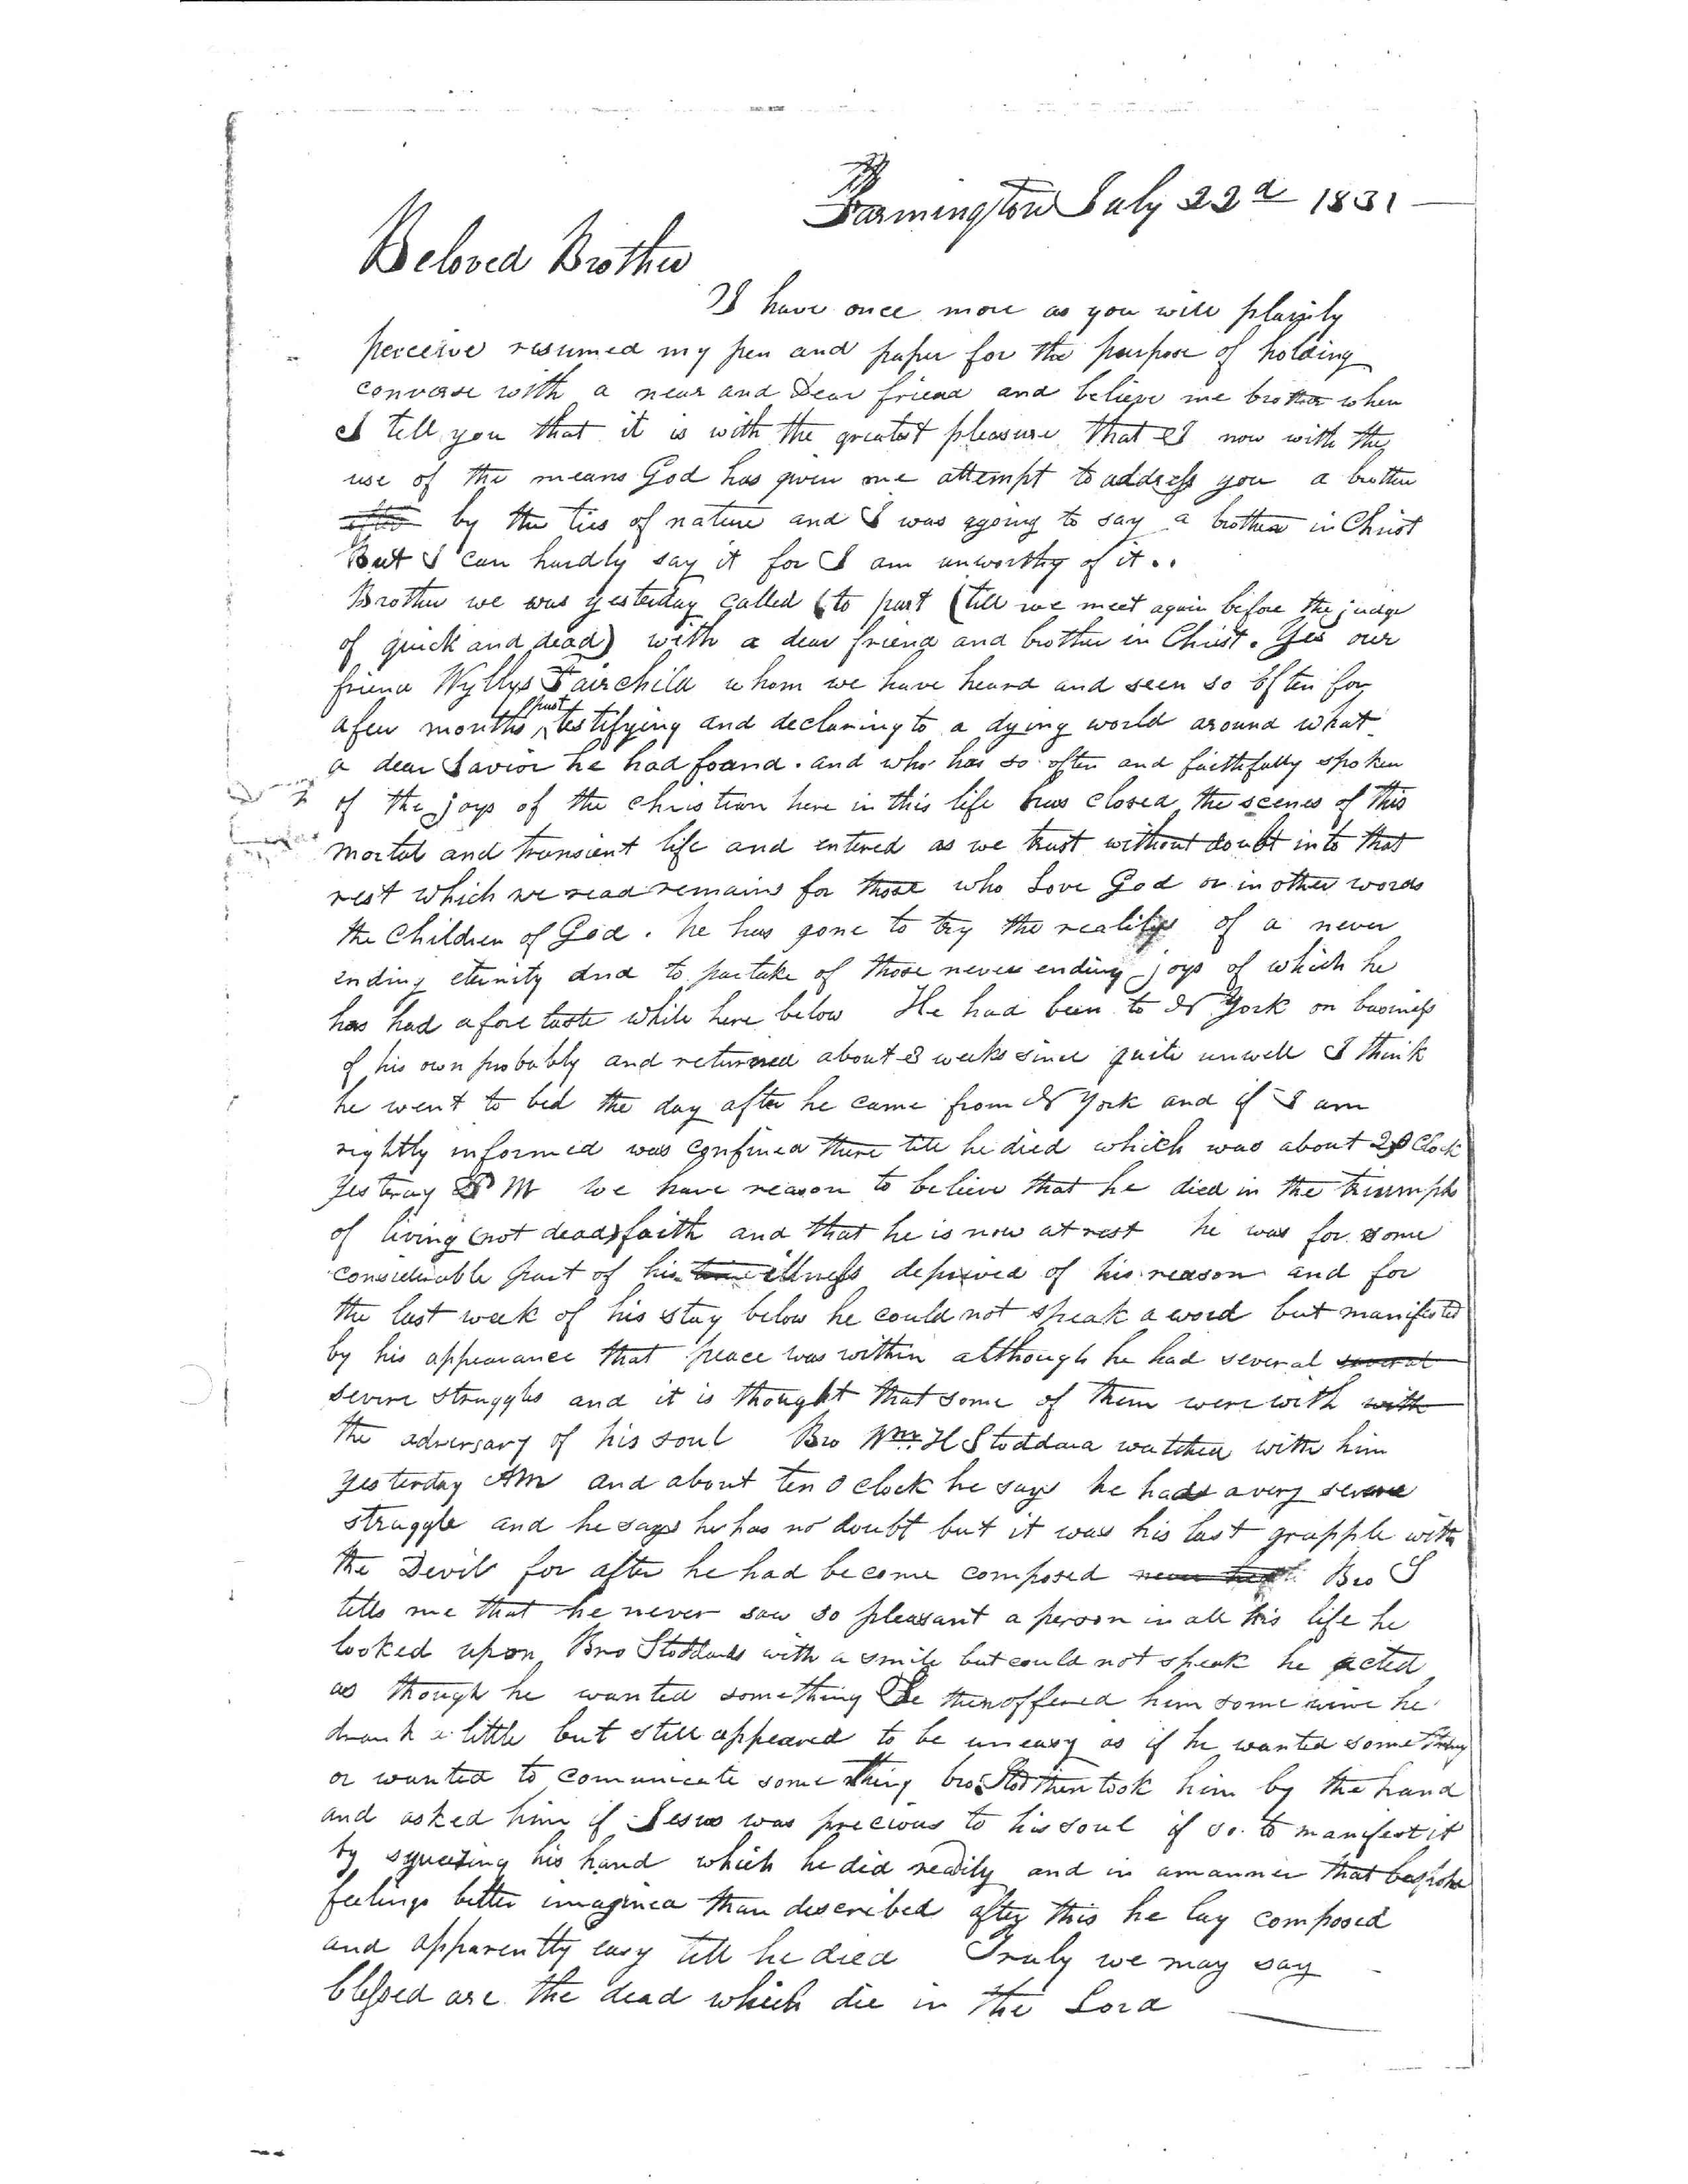 Farmington July 22d 1831
Beloved Brother
I have once more as you will plainly
perceive resumed my pen and paper for the purpose of holding
converse with a near and Dear friend and believe me brother when
I tell you that it is with the greatest pleasure that I now with the
use of the means God has given me attempt to address you a brother
by the ties of nature and I was agoing to say a brother in Christ
But I can hardly say it for I am unworthy of it..
Brother we was yesterday called (to part (till we meet again before the judge
of quick and dead) with a dear friend and brother in Christ. Yes our
friend Wyllys Fairchild whom we have heard and seen so often for
a few months past testifying and declaring to a dying world around what
a dear Savior he had found. and who has so often and faithfully spoken
of the joys of the christian here in this life has closed the scenes of this
mortal and transient life and entered as we trust without doubt into that
rest which we read remains for those who Love God or in other words
the Children of God. he has gone to try the reality of a never
ending eternity and to partake of those never ending joys of which he
has had a fore taste while here below He had been to N York on business
of his own probably and returned about 3 weeks since quite unwell I think
he went to bed the day after he came from N York and if I am
rightly informed was confined there till he died which was about 2 O Clock
Yesteray P M we have reason to believe that he died in the triumph
of living (not dead) faith and that he is now at rest he was for some
considerable part of his illness deprived of his reason and for
the last week of his stay below he could not speak a word but manifested
by his appearance that peace was within although he had several several
severe struggles and it is thought that some of them were with with
the adversary of his soul Bro Wm. H Stoddard watched with him
yesterday AM and about ten O clock he says he had a very severe
struggle and he says he has no doubt but it was his last grapple with
the Devil for after he had become composed Bro S
tells me that he never saw so pleasant a person in all his life he
looked upon Bro Stoddard with a smile but could not speak he acted
as though he wanted something He then offered him some wine he
drank a little but still appeared to be uneasy as if he wanted something
or wanted to comunicate something bro Stod then took him by the hand
and asked him if Jesus was precious to his soul if so to manifest it
by squeezing his hand which he did readily and in a manner that bespoke
feelings better imagined than described after this he lay composed
and apparently easy till he died Truly we may say
blessed are the dead which die in the Lord